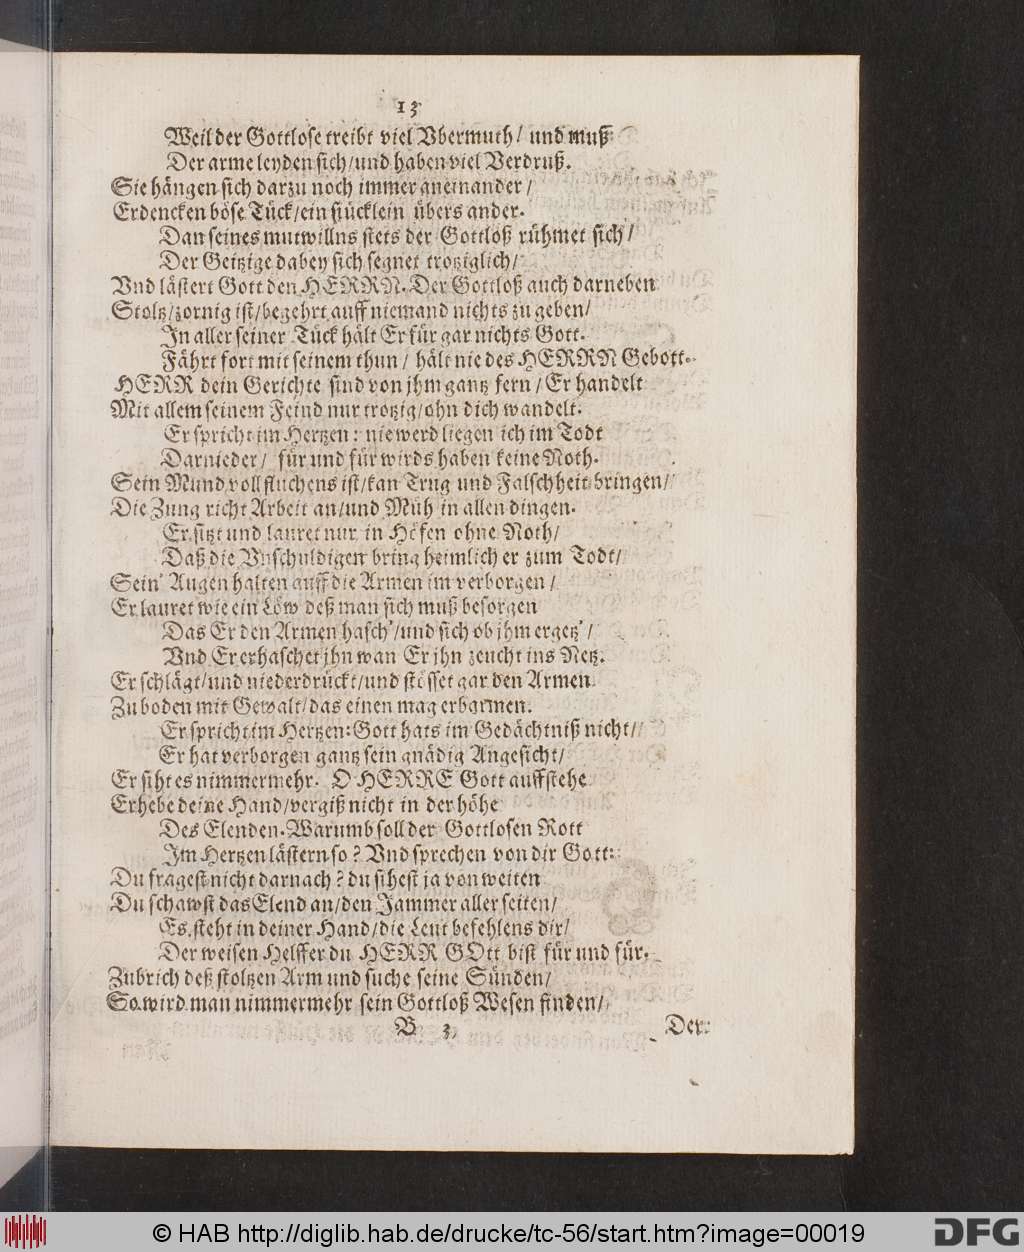 13
Weil der Gottlose treibt viel Vbermuth/ und muß
Der arme leyden sich/und haben viel Verdruß.
Sie hängen sich darzu noch immer aneinander/
Erdencken böse Tück/ein stücklein übers ander.
Dan seines mutwillns stets der Gottloß rühmet sich/
Der Geitzige dabey sich segnet trotziglich/
Vnd lästert Gott den HERRN. Der Gottloß auch darneben
Stoltz/zornig ist/begehrt auff niemand nichts zu geben/
In aller seiner Tück hält Er für gar nichts Gott.
Fährt fort mit seinem thun/ hält nie des HERRN Gebott.
HERR dein Gerichte sind von jhm gantz fern/Er handelt
Mit allem seinem Feind nur trotzig/ohn dich wandelt.
Er spricht im Hertzen: nie werd liegen ich im Todt
Darnieder/ für und für wirds haben keine Noth.
Sein Mund voll fluchens ist/kan Trug und Falschheit bringen/
Die Zung richt Arbeit an/und Müh in allen dingen.
Er sitzt und lauret nur in Höfen ohne Noth/
Daß die Vnschuldigen bring heimlich er zum Todt/
Sein' Augen halten auff die Armen im verborgen/
Er lauret wie ein Löw deß man sich muß besorgen
Das Er den Armen hasch'/und sich ob jhm ergetz'/
Vnd Er erhaschet jhn wan Er jhn zeucht ins Netz.
Er schlägt/und niederdrückt/und stösset gar den Armen
Zu boden mit Gewalt/das einen mag erbarmen.
Er spricht im Hertzen: Gott hats im Gedächtniß nicht/
Er hat verborgen gantz sein gnädig Angesicht/
Er siht es nimmermehr. O HERRE Gott auffstehe
Erhebe deine Hand/vergiß nicht in der höhe
Des Elenden. Warumb soll der Gottlosen Rott
Im Hertzen lästern so? Vnd sprechen von dir Gott:
Du fragest nicht darnach? du sihest ja von weiten
Du schawst das Elend an/den Jammer aller seiten/
Es steht in deiner Hand/die Leut befehlens dir/
Der weisen Helffer du HERR GOtt bist für und für.
Zubrich deß stoltzen Arm und suche seine Sünden/
So wird man nimmermehr sein Gottloß Wesen finden/
B 3 Der
© HAB http://diglib.hab.de/drucke/tc-56/start.htm?image=00019
DFG